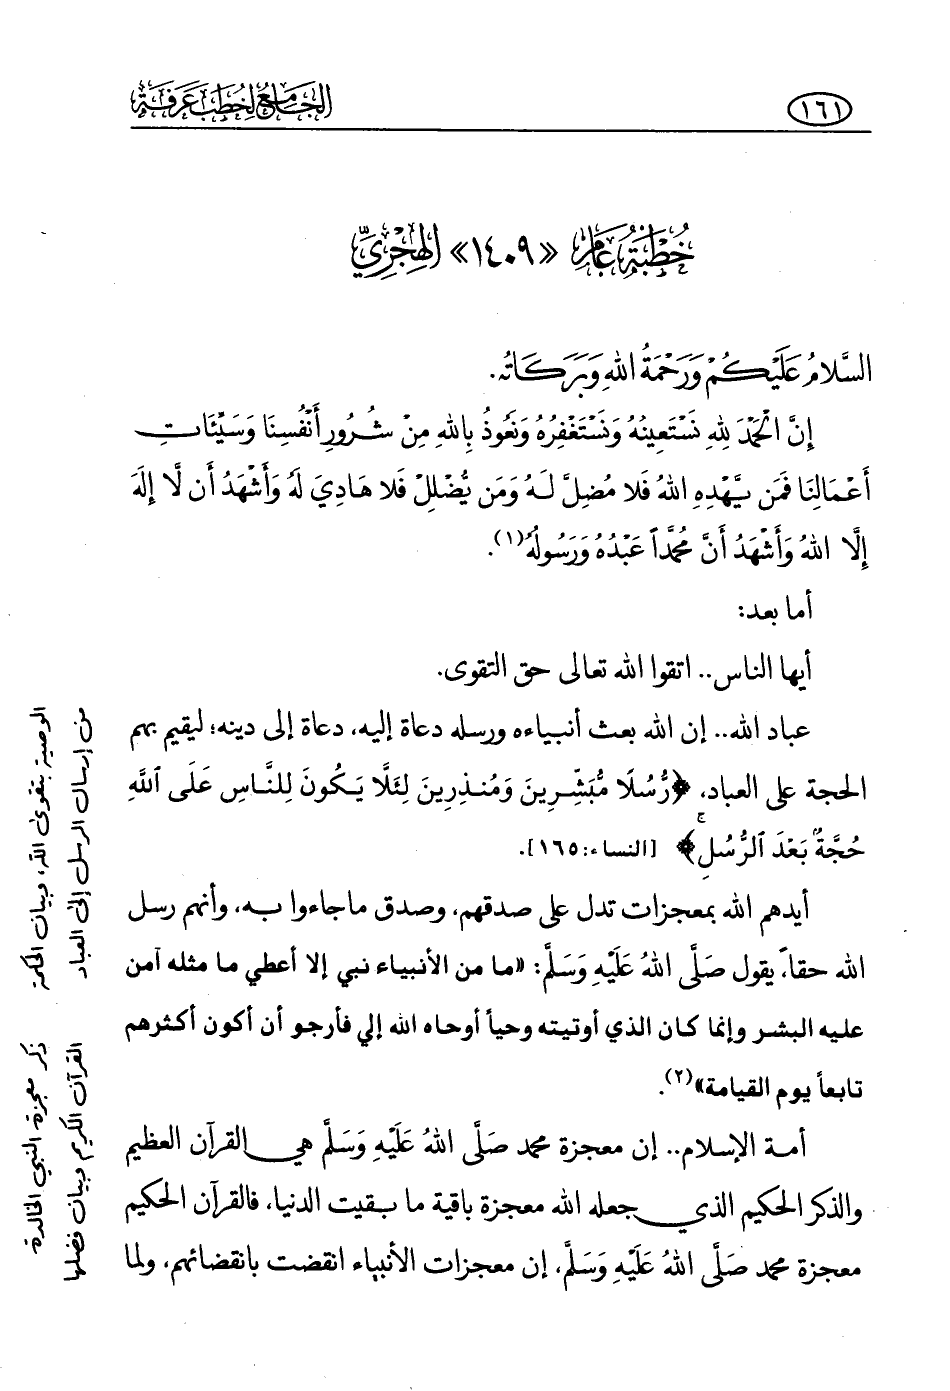 ١٦١
الجامع لخطب عرفة
خُطْبَةُ عَامِ «١٤٠٩» الهِجْرِيِّ
السَّلَامُ عَلَيْكُمْ وَرَحْمَةُ اللهِ وَبَرَكَاتُه.
إِنَّ الْحَمْدَ لِلهِ نَسْتَعِينُهُ وَنَسْتَغْفِرُهُ وَنَعُوذُ بِاللهِ مِنْ شُرُورِ أَنْفُسِنَا وَسَيِّئَاتِ
أَعْمَالِنَا فَمَن يَّهْدِهِ اللهُ فَلَا مُضِلَّ لَهُ وَمَن يُّضْلِلْ فَلَا هَادِيَ لَهُ وَأَشْهَدُ أَن لَّا إِلَهَ
إِلَّا اللهُ وَأَشْهَدُ أَنَّ مُحَمَّداً عَبْدُهُ وَرَسُولُهُ(١).
أما بعد:
أيها الناس.. اتقوا الله تعالى حق التقوى.
عباد الله.. إن الله بعث أنبياءه ورسله دعاة إليه، دعاة إلى دينه؛ ليقيم بهم
الحجة على العباد، ﴿رُّسُلًا مُّبَشِّرِينَ وَمُنذِرِينَ لِئَلَّا يَكُونَ لِلنَّاسِ عَلَى ٱللَّهِ
حُجَّةٌۢ بَعْدَ ٱلرُّسُلِۚ﴾ [النساء:١٦٥].
أيدهم الله بمعجزات تدل على صدقهم، وصدق ماجاءوا به، وأنهم رسل
الله حقاً، يقول صَلَّى اللهُ عَلَيْهِ وَسَلَّمَ: «ما من الأنبياء نبي إلا أعطي ما مثله آمن
عليه البشر وإنما كان الذي أوتيته وحياً أوحاه الله إلي فأرجو أن أكون أكثرهم
تابعاً يوم القيامة»(٢).
أمة الإسلام.. إن معجزة محمد صَلَّى اللهُ عَلَيْهِ وَسَلَّمَ هي القرآن العظيم
والذكر الحكيم الذي جعله الله معجزة باقية ما بقيت الدنيا، فالقرآن الحكيم
معجزة محمد صَلَّى اللهُ عَلَيْهِ وَسَلَّمَ، إن معجزات الأنبياء انقضت بانقضائهم، ولما
الوصية بتقوى الله، وبيان الحكمة
من إرسال الرسل إلى العباد
ذكر معجزة النبي الخالدة
القرآن الكريم وبيان فضلها